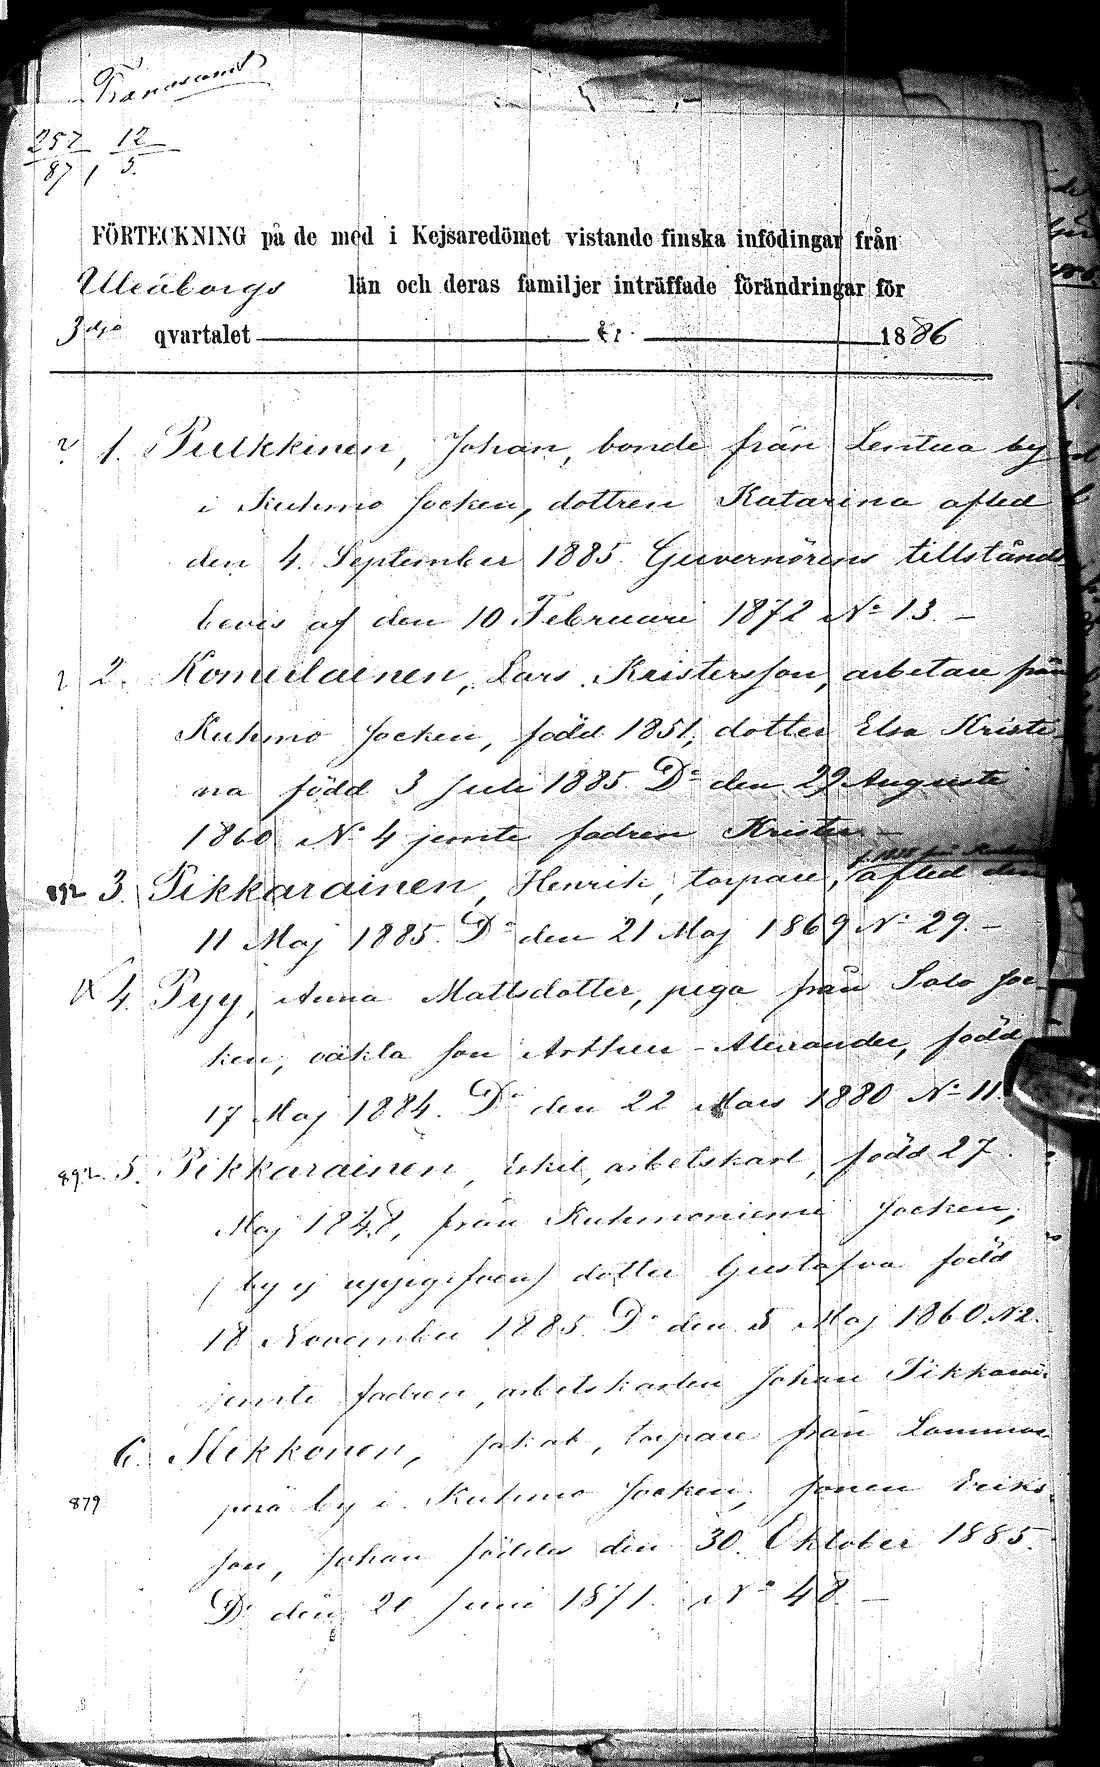 257 12
87 1 5.
FÖRTECKNING på de med i Kejsaredömet vistande finska infödingar från
Uleåborgs län och deras familjer inträffade förändringar för
3dje qvartalet år 1886
1. Pulkkinen, Johan, bonde från Lentua by
i Kuhmo socken, dottren Katarina afled
den 4. September 1885. Guvernörens tillstånds
bevis af den 10 Februari 1872 No 13. –
2. Komulainen, Lars Kristersson, arbetare från
Kuhmo socken, född 1851, dotter Elsa Kristi
na född 3 Juli 1885. Do den 29 Augusti
1860 No 4 jemte fadren Krister –
892 3. Pikkarainen, Henrik, torpare, afled den
11 Maj 1885. Do den 21 Maj 1869 No 29. –
4. Pyy, Anna Mattsdotter, piga från Salo soc-
ken, oäkta son Arthur-Alexander, född
17 Maj 1884. Do den 22 Mars 1880 No 11.
892 5. Pikkarainen, Eskil, arbetskarl, född 27
Maj 1848, från Kuhmoniemi socken,
(by ej uppgifven) dotter Gustafva född
18 November 1885. Do den 5 Maj 1860 No 2.
jemte fadren, arbetskarlen Johan Pikkarai.
6. Mikkonen, Jakob, torpare från Lammas
perä by i Kuhmo socken, sonen Eriks
879
son, Johan föddes den 30. Oktober 1885.
Do den 20 Juni 1871. No 48 –